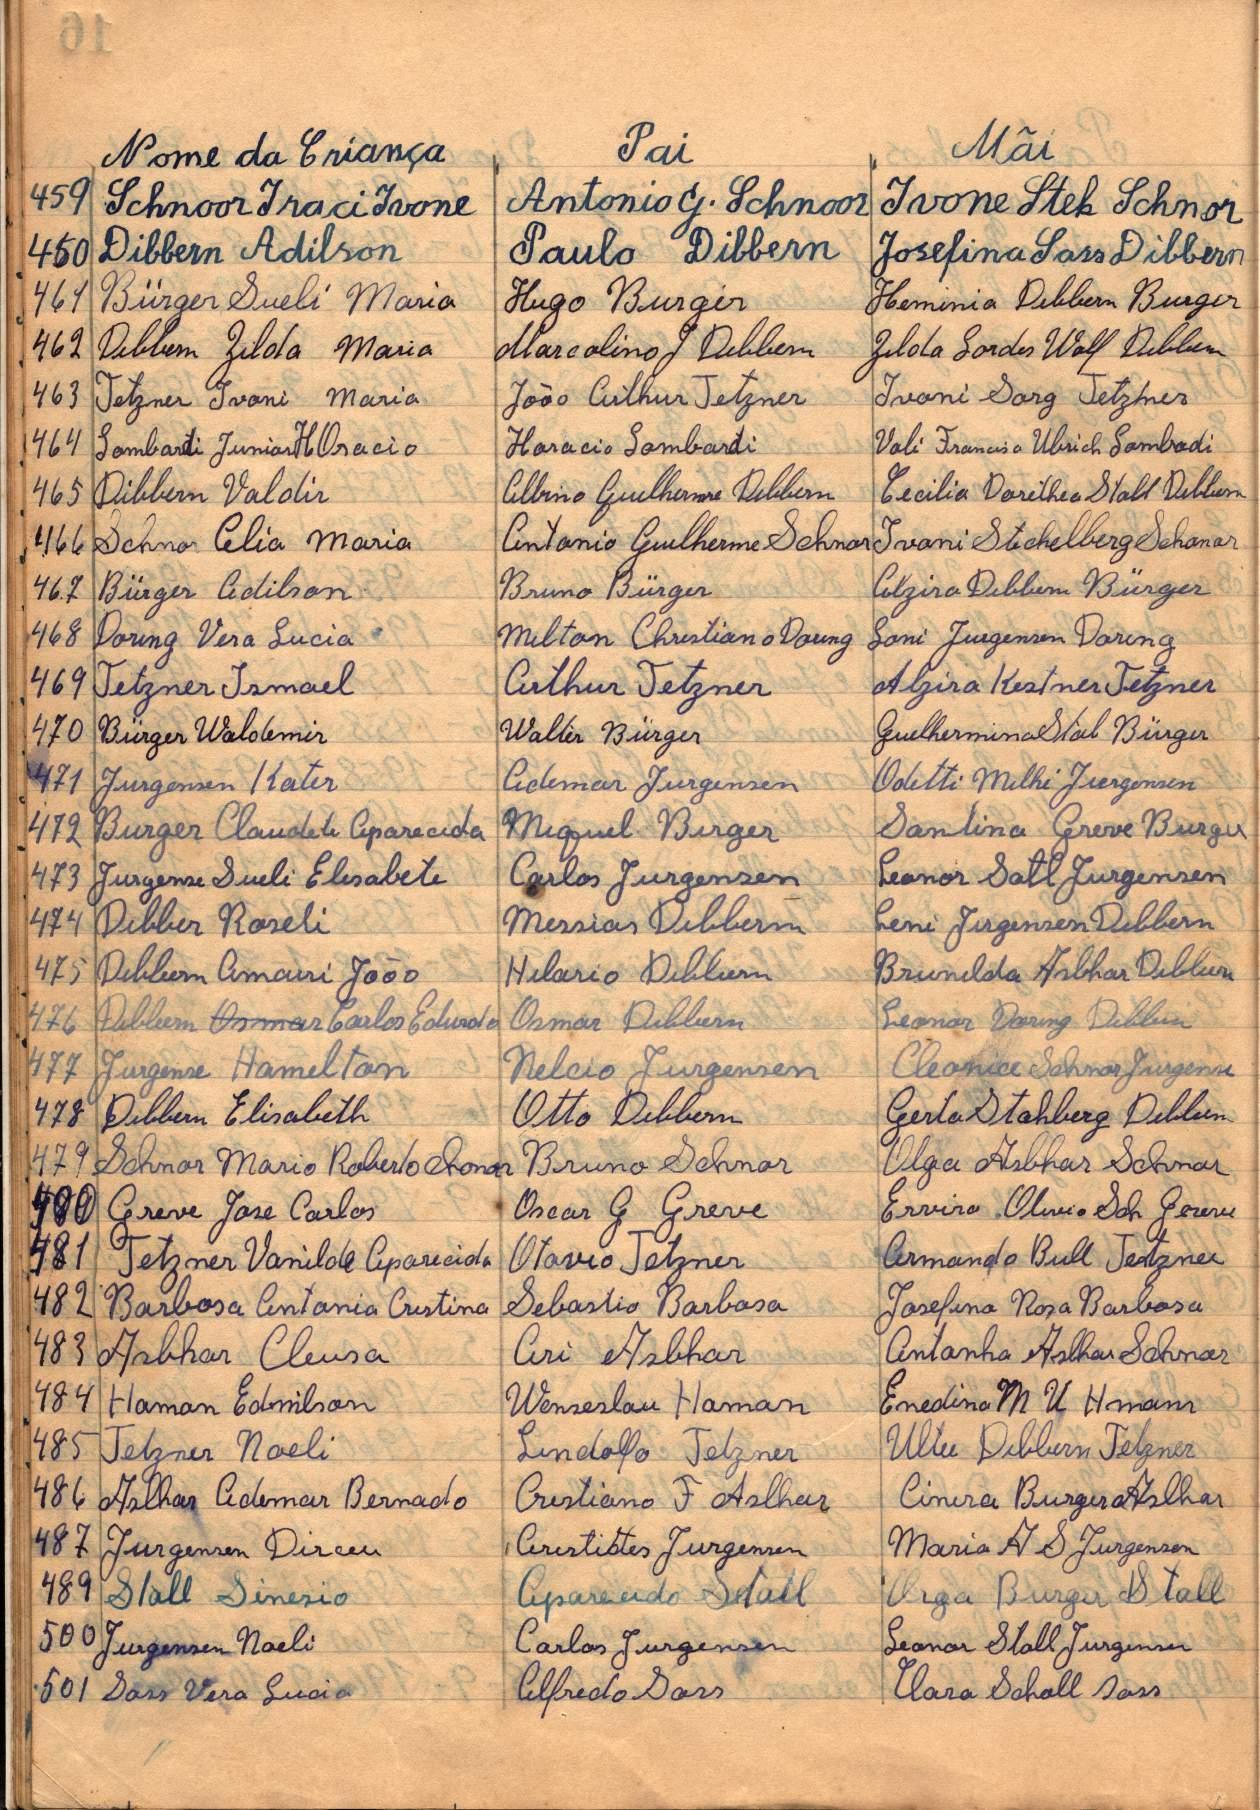 16
Nome da Criança Pai Mãi
459 Schnoor Iraci Ivone Antonio G. Schnoor Ivone Stek Schnor
460 Dibbern Adilson Paulo Dibbern Josefina Sass Dibbern
461 Bürger Sueli Maria Hugo Burger Heminia Dibbern Burger
462 Dibbern Zilda Maria Marcolino J Dibbern Zilda Lordes Wolf Dibbern
463 Tetzner Ivani Maria João Arthur Tetzner Ivani Sorg Tetzner
464 Lombardi Junior HOracio Horacio Lombardi Vali Francisa Ulrich Lombadi
465 Dibbern Valdir Albino Guilherme Dibbern Cecilia Dorithea Stall Dibbern
466 Schnor Celia Maria Antonio Guilherme Schnor Ivani Stichelberg Schonor
467 Bürger Adilson Bruno Bürger Alzira Dibbern Bürger
468 Doring Vera Lucia Milton Christiano Doring Loni Jurgensen Doring
469 Tetzner Ismael Arthur Tetzner Alzira Kestner Tetzner
470 Bürger Waldemir Walter Bürger Guilhermina Stal Bürger
471 Jurgensen Kater Ademar Jurgensen Odetti Milhi Juergensen
472 Burger Claudete Aparecida Miquel Burger Santina Greve Burger
473 Jurgense Sueli Elisabete Carlos Jurgensen Leonor Satl Jurgensen
474 Dibber Roseli Messias Dibbern Leni Jirgensen Dibbern
475 Dibbern Amauri João Hilario Dibbern Brunilda Asbhar Dibbern
476 Dibbern Osmar Carlos Edurado Osmar Dibbern Leonor Doring Dibbern
477 Jurgense Hamelton Nelcio Jurgensen Cleonice Schnor Jurgense
478 Dibbern Elisabeth Otto Dibbern Gerta Stahberg Dibbern
479 Schnor Mario Roberto chonor Bruno Schnor Olga Asbhar Schnor
480 Greve Jose Carlos Oscar G Greve Ervira Olivia Sch Greve
481 Tetzner Vanilde Aparecida Otavio Tetzner Armando Bull Tetzner
482 Barbosa Antonia Cristina Sebastio Barbosa Josefina Rosa Barbosa
483 Asbhar Cleusa Ari Asbhar Antonha Asbhar Schnor
484 Haman Edmilson Wenseslau Haman Enedina M U Hmann
485 Tetzner Noeli Lindolfo Tetzner Dibbern Tetzner
486 Aslhar Ademar Bernado Cristiano F Aslhar Burger Aslhar
487 Jurgensen Dirceu Aristites Jurgensen Maria A S Jurgensen
489 Stall Sinesio Aparecido Stall Burger Stall
500 Jurgensen Noeli Carlos Jurgensen Leonor Stall Jurgensen
501 Sass Vera Lucia Alfredo Sass Clara Scholl Sass